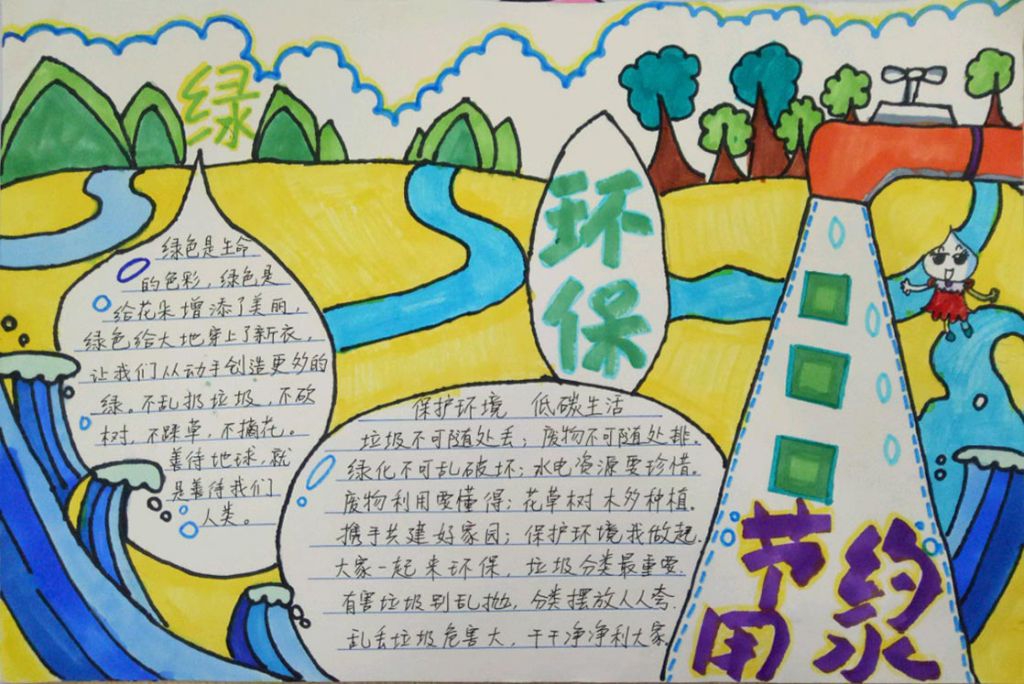 绿
环
保
绿色是生命
的色彩,绿色是
给花朵增添了美丽,
绿色给大地穿上了新衣,
让我们从动手创造更多的
绿。不乱扔垃圾,不砍
树,不踩草,不摘花。
善待地球,就
是善待我们
人类。
保护环境 低碳生活
垃圾不可随处丢;废物不可随处排。
绿化不可乱破坏;水电资源要珍惜。
废物利用要懂得;花草树木多种植。
携手共建好家园;保护环境我做起。
大家一起来环保,垃圾分类最重要。
有害垃圾别乱抛,分类摆放人人夸。
乱丢垃圾危害大,干干净净利大家
节约
用水